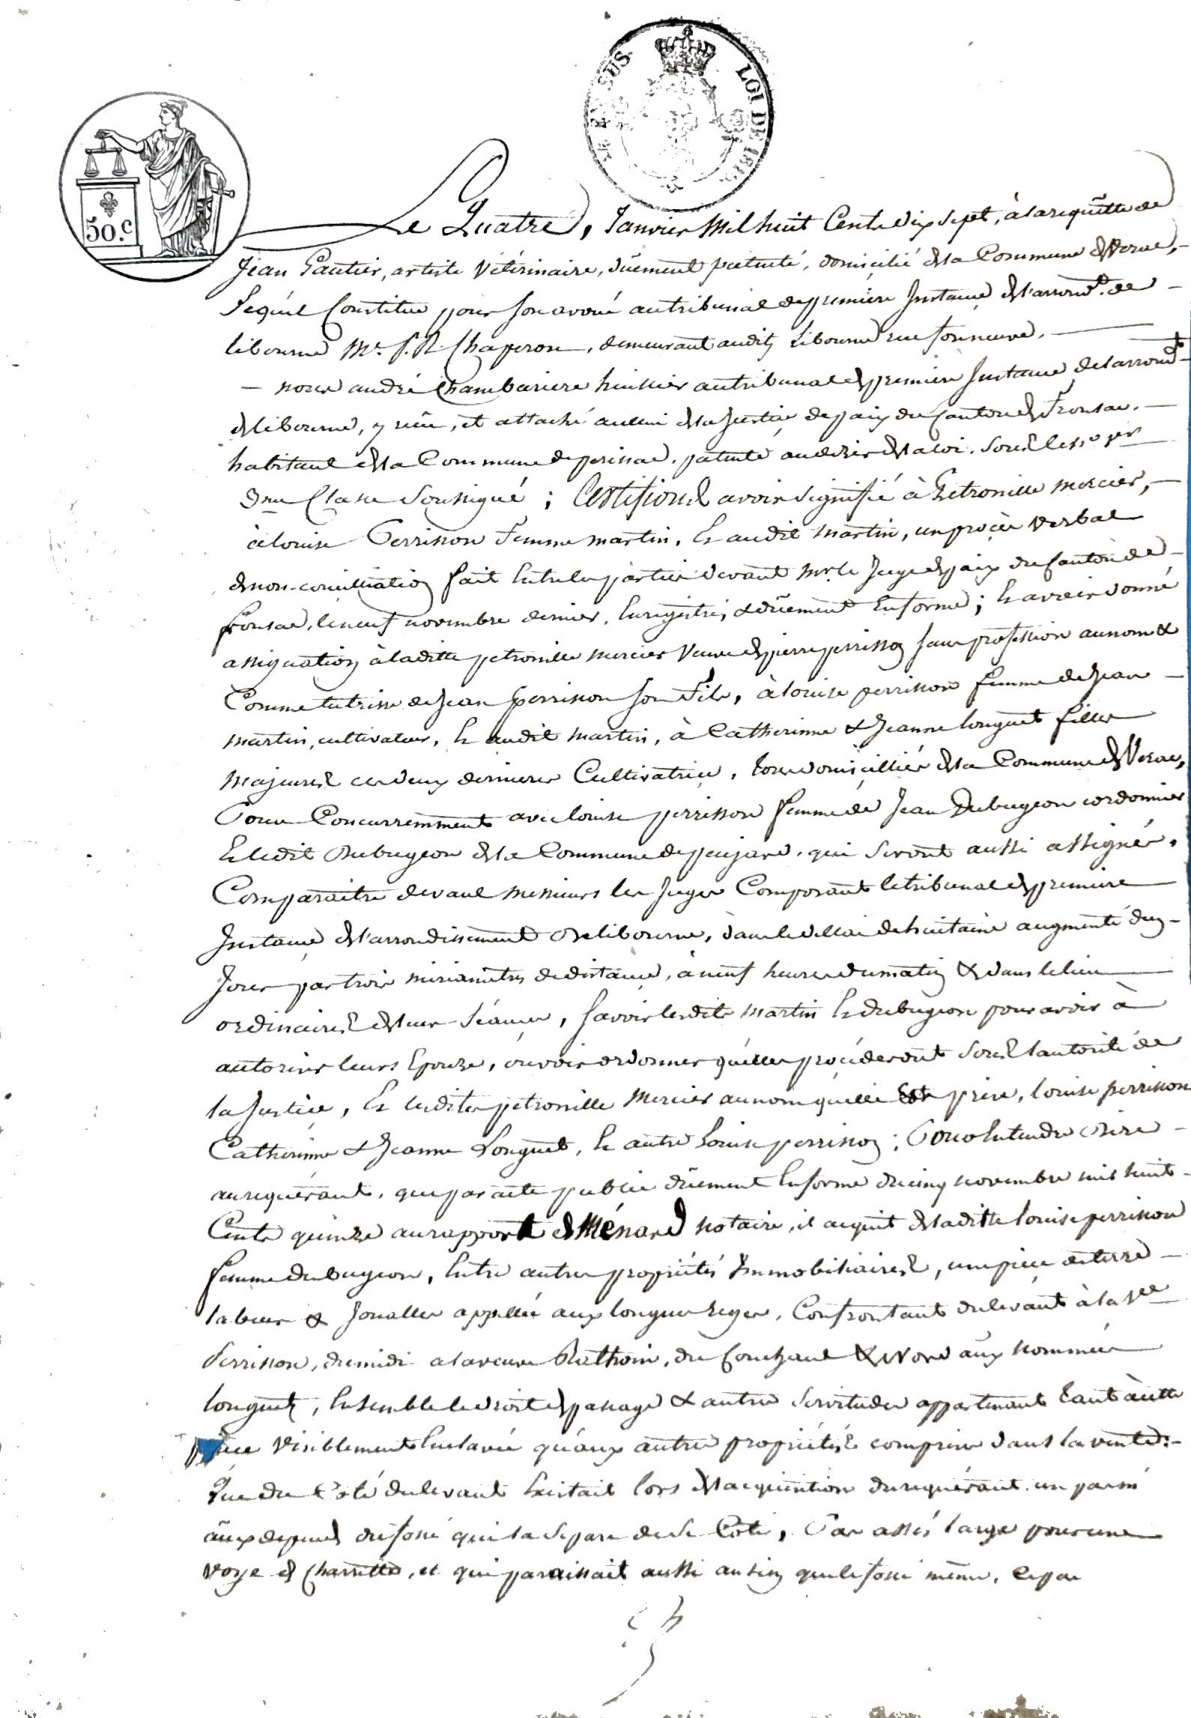 50.c
EN SUS. LOI DE 1816.
Le Quatre, Janvier Mil huit Cents dix sept, à la requête de
Jean Gautier, artiste vétérinaire, dûment patenté, domicilié de la Commune de Verac,
lequel Constitue pour son avoué au tribunal de première Instance de l'arrond.t de
libourne M.e P.R. Chaperon, demeurant audit Libourne rue fonneuve.
nous andré Chambariere huissier au tribunal de première Instance de l'arrond.t
de libourne, y reçu, et attaché au de la Justice de paix du Canton de Fronsac,
habitant de la Commune de perissac, patenté au desir de la loi, sous le n.o
Classe Soussigné ; Certifions avoir signifié à Petronille mercier,
à louise Perrisson Femme martin, Et audit martin, un procès verbal
de non-conciliation fait Entre les parties devant M.r le Juge de paix du Canton de
fronsac, le neuf novembre dernier, Enregistré, & dûement En forme ; Et avoir donné
assignation à la ditte petronille mercier Veuve de pierre perrisson sans profession au nom &
Comme tutrisse de Jean perrisson son Fils, à louise perrisson femme de Jean
martin, cultivateur, Et audit martin, à Catherinne & Jeanne longuet filles
majeures ces deux dernieres Cultivatrices, tous domicilliés de la Commune de Verac,
Pour Concurremment avec louise perrisson femme de Jean Dubugeon cordonnier
Et ledit Dubugeon de la Commune de puijard, qui seront aussi assignés,
Comparaitre devant messieurs les Juges Composants le tribunal de premiere
Instance de l'arrondissement de libourne, dans le dellai de huitaine augmenté d'un
Jour par trois miriamètres de distance, à neuf heures du matin & dans le lieu
ordinaires de leur Séances, Savoir lesdits martin Et dubugeon pour avoir à
autoriser leurs Epouzes, ou voir ordonner qu'elles procéderont Sous l'autorité de
la Justice, Et lesdites petronille Mercier au nom qu'elle Est prise, louise perrisson
Catherinne & Jeanne Longuet, Et autre Louise perrisson ; Pour Entendre Dire
au requérant, que par acte public dûement En forme du cinq novembre mil huit
Cents quinze au rapport de Ménard notaire, il acquit de la ditte louise perrisson
femme dubugeon, Entre autres propriétés Immobiliaires, une piece de terre
labeur & Joualles appellée aux longues reges, Confrontant du levant à la V.ve
Perrisson, du midi a la veuve , du Couchant & nord aux nommées
longuet, Ensemble le droit de passage & autres Servitudes appartenants tant à cette
pièce visiblement Enclavée qu'aux autres propriétés comprises dans la vente :
Que du Coté du levant Existait lors de l'acquisition du requérant, un
du fossé qui la Separe de ce Coté, Pas assés large pour une
voye de Charrette, et qui paraissait aussi ancien que le fossé même,